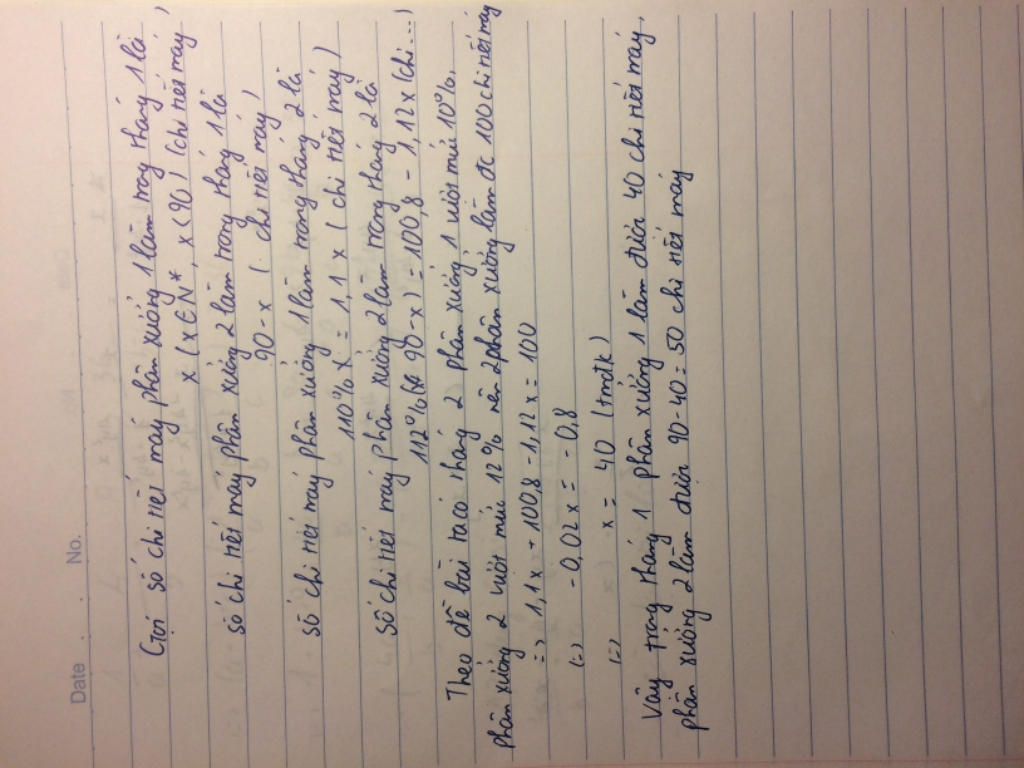 Date No.
Gọi số chi tiết máy phân xưởng 1 làm trong tháng 1 là
x (x ∈ N*, x < 90) (chi tiết máy)
số chi tiết máy phân xưởng 2 làm trong tháng 1 là
90 - x ( chi tiết máy)
số chi tiết máy phân xưởng 1 làm trong tháng 2 là
110% x = 1,1 x ( chi tiết máy)
Số chi tiết máy phân xưởng 2 làm trong tháng 2 là
112% (90 - x) = 100,8 - 1,12 x (chi...)
Theo đề bài ta có tháng 2 phân xưởng 1 vượt mức 10%,
phân xưởng 2 vượt mức 12% nên 2 phân xưởng làm đc 100 chi tiết máy
=> 1,1 x + 100,8 - 1,12 x = 100
(=) -0,02 x = -0,8
(=) x = 40 (tmđk)
Vậy trong tháng 1 phân xưởng 1 làm được 40 chi tiết máy,
phân xưởng 2 làm được 90 - 40 = 50 chi tiết máy